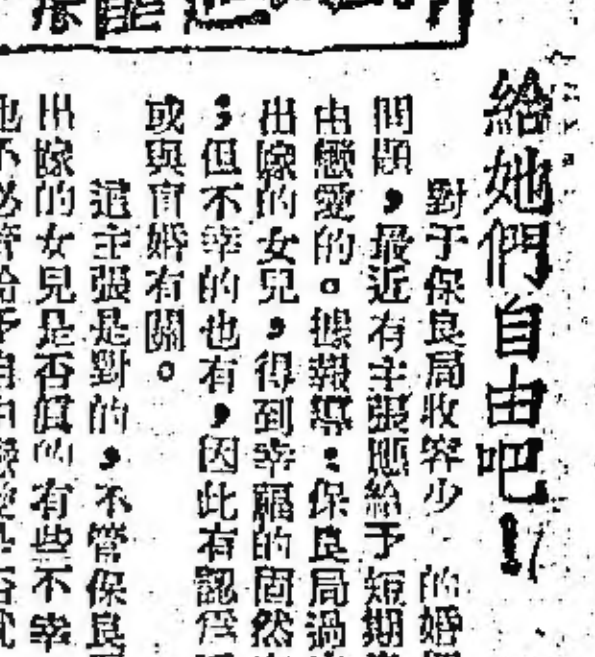 給她們自由吧!
對于保良局收容少 的婚
問題,最近有主張應給予短期
由戀愛的。據報導:保良局過
出嫁的女兒,得到幸福的固然
;但不幸的也有,因此有認爲
或與盲婚有關。
這主張是對的,不管保良
出嫁的女兒是否眞的有些不幸
也不必管給予自由戀愛是否